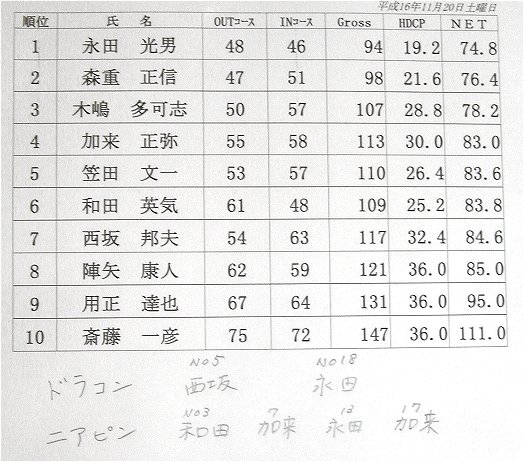 平成16年11月20日土曜日
順位 氏 名 OUTコース INコース Gross HDCP NET
1 永田 光男 48 46 94 19.2 74.8
2 森重 正信 47 51 98 21.6 76.4
3 木嶋 多可志 50 57 107 28.8 78.2
4 加来 正弥 55 58 113 30.0 83.0
5 笠田 文一 53 57 110 26.4 83.6
6 和田 英気 61 48 109 25.2 83.8
7 西坂 邦夫 54 63 117 32.4 84.6
8 陣矢 康人 62 59 121 36.0 85.0
9 用正 達也 67 64 131 36.0 95.0
10 斎藤 一彦 75 72 147 36.0 111.0
No5 No18
ドラコン 西坂 永田
No3 7 13 17
ニアピン 和田 加来 永田 加来